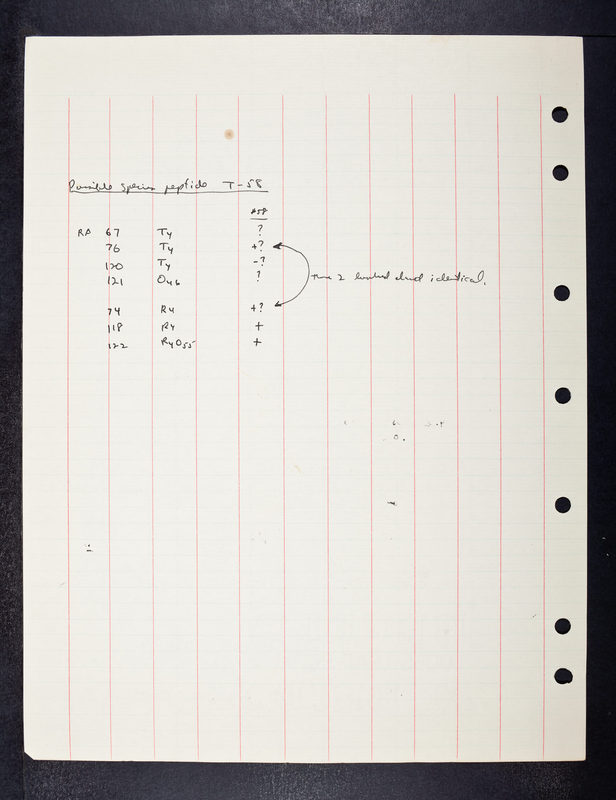 Possible species peptide T-58
A58
RA 67 Ty ?
76 Ty +?
120 Ty -?
121 O46 ?
These 2 looked almost identical.
74 R4 +?
118 R4 +
122 R4O55 +